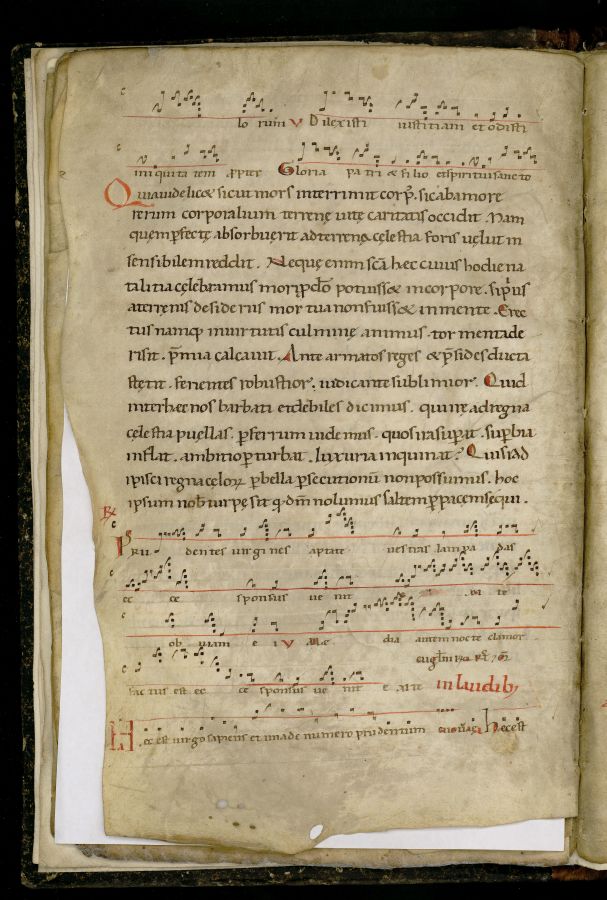 lo rum V Dilexisti iusticiam et odisti
iniquita tem ꝓpter Gloria pa tri & filio et spiritui sancto
Quia uidelic& sicut mors interimit corpꝰ. sic ab amore
rerum corporalium terrenę uitę caritatis occidit. Nam
quem ꝑfectę absorbuerit ad terrena cęlestia foris uęlut in
sensibilem reddit. Neque enim scā hęc cuius hodie na
talitia cęlebramus mori ꝓ dō potuiss& in corpore. si pͥus
a terrenis desideriis mortua non fuiss& in mente. Erec
tus namq; in uirtutis culmine animus. tormenta de
risit. p̄mia calcauit. Ante armatos reges & p̄sides ducta
stętit. feriente robustior. iudicante sublimior. Quid
inter hęc nos barbati et debiles dicimus. qui ire ad regna
cęlestia puellas. ꝑ ferrum uidemus. quos ira supat. supbia
inflat. ambitio ꝑturbat. luxuria inquinat? Qui si ad
ipisci regna cęlorꝝ ꝑ bella ꝑsecutionū non possumus. hoc
ipsum nob turpę sit q dm̄ nolumus saltem ꝑ pacem sequi.
Rx Pru dentes uirgines aptate uestras lampa das
ec ce sponsus ue nit
ob uiam e i V Me dia autem nocte clamor
fac tus est ec ce sponsus ue nit e xi te in laudibꝰ
Hec est uirgo sapiens et una de numero prudentum euouae Hec est